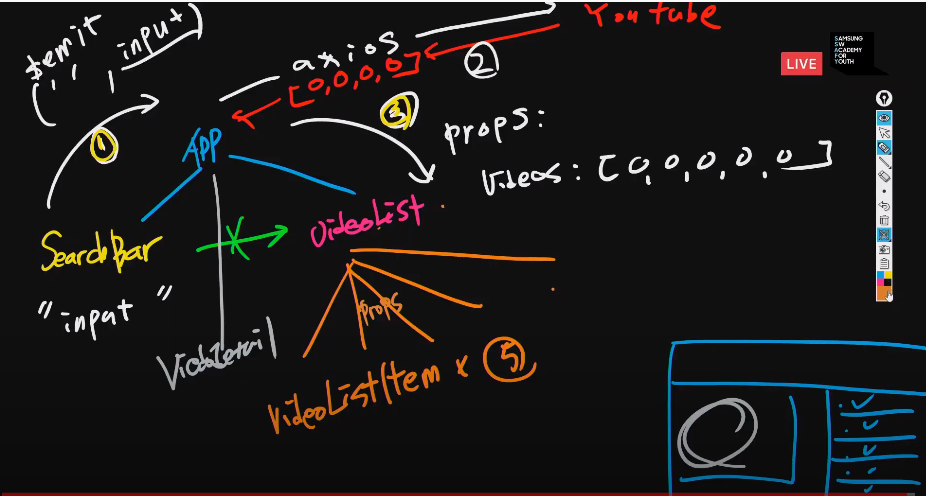 YouTube
$emit
(' ' , input)
axios
[0,0,0,0]
②
LIVE
SAMSUNG
SW
ACADEMY
FOR
YOUTH
③
①
APP
props:
Videos: [0,0,0,0,0]
SearchBar
X
VideoList
"input"
props
VideoDetail
VideoListItem x ⑤